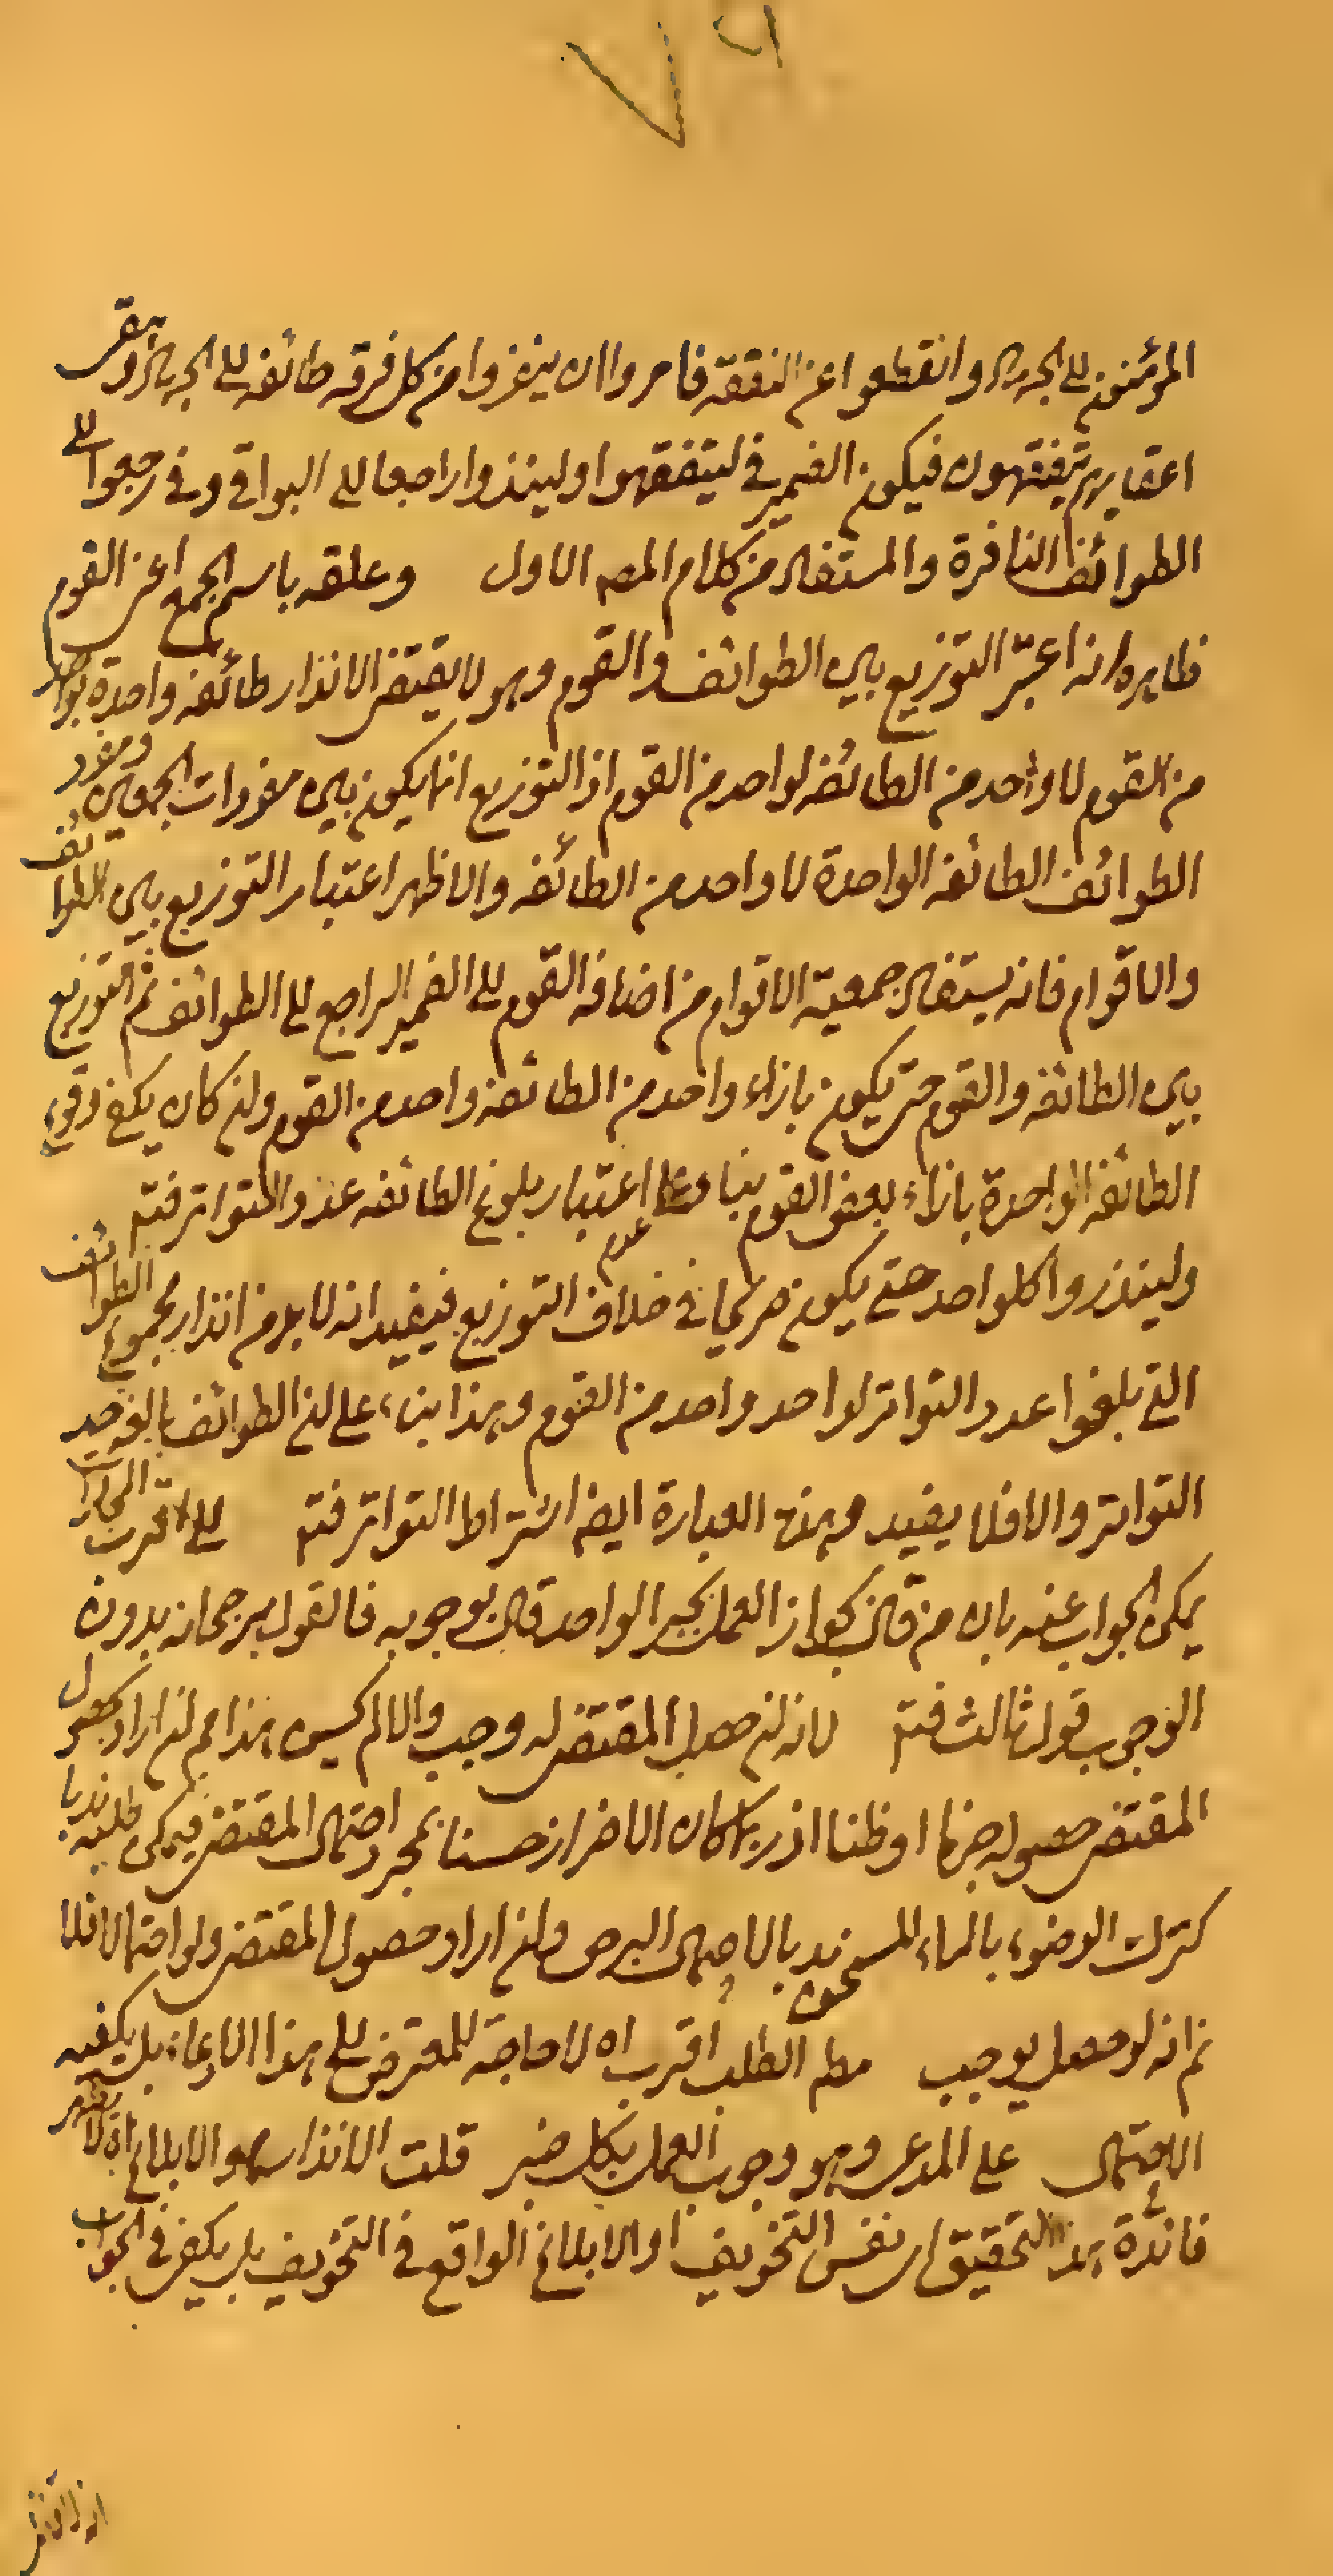 المؤمنون الى الجهاد وانقطعوا عن التفقه فامروا ان ينفروا من كل فرقة طائفه الى الجهاد ويبقى
اعقابهم يتفقهون فيكون الضمير في ليتفقهوا ولينذروا راجعا الى البواقي وفي رجعوا الى
الطوائف النافرة والمستفاد من كلام المصه الاول وعلقه باسم الجمع اعنى القوم
ظاهره انه اعتبر التوزيع بين الطوائف والقوم وهو لا يقتضى الا انذار طائفه واحدة بواحد
من القوم لا واحد من الطائفه لواحد من القوم اذ التوزيع انما يكون بين مفردات الجمعين ومفرد
الطوائف الطائفه الواحدة لا واحد من الطائفه والاظهر اعتبار التوزيع بين الطوائف
والاقوام فانه يستفاد جمعية الاقوام من اضافه القوم الى الضمير الراجع الى الطوائف ثم التوزيع
بين الطائفه والقوم حتى يكون بازاء واحد من الطائفه واحد من القوم وان كان يكفى وقوع
الطائفه الواحدة بازاء بعض القوم بناء على عدم اعتبار بلوغ الطائفه عدد التواتر فتم
ولينذروا كلواحد حتى يكون صريحا في خلاف التوزيع فيفيد انه لا بد من انذار مجموع الطوائف
التي بلغوا عدد التواتر لواحد واحد من القوم وهذا بناء على ان الطوائف بالغه حد
التواتر والا فلا يفيد هذه العبارة ايضا اشتراط التواتر فتم الى اقرب المجازات
يمكن الجواب عنه بان من قال بجواز العمل بخبر الواحد قال بوجوبه فالقول برجحانه بدون
الوجوب قول ثالث فتم لانه ان حصل المقتضى له وجب والا لم يحسن هذا مم ان اراد بحصول
المقتضى حصوله جزما او ظنا اذ ربما كان الاحتراز حسنا بمجرد احتمال المقتضى فيمكن طلبه ندبا
كترك الوضوء بالماء المسخن ندبا لاحتمال البرص وان اراد حصول المقتضى ولو احتمالا فلا
نم انه لو حصل يوجب مطه الطلب اقرب اه لا حاجة للمعترض الى هذا الادعاء بل يكفيه
الاحتمال على المدعى وهو وجوب العمل بكل خبر قلت الانذار هو الابلاغ اه لا يظهر
فائدة هذا التحقيق اى نفس التخويف او الابلاغ الواقع في التخويف بل يكفى في الجواب